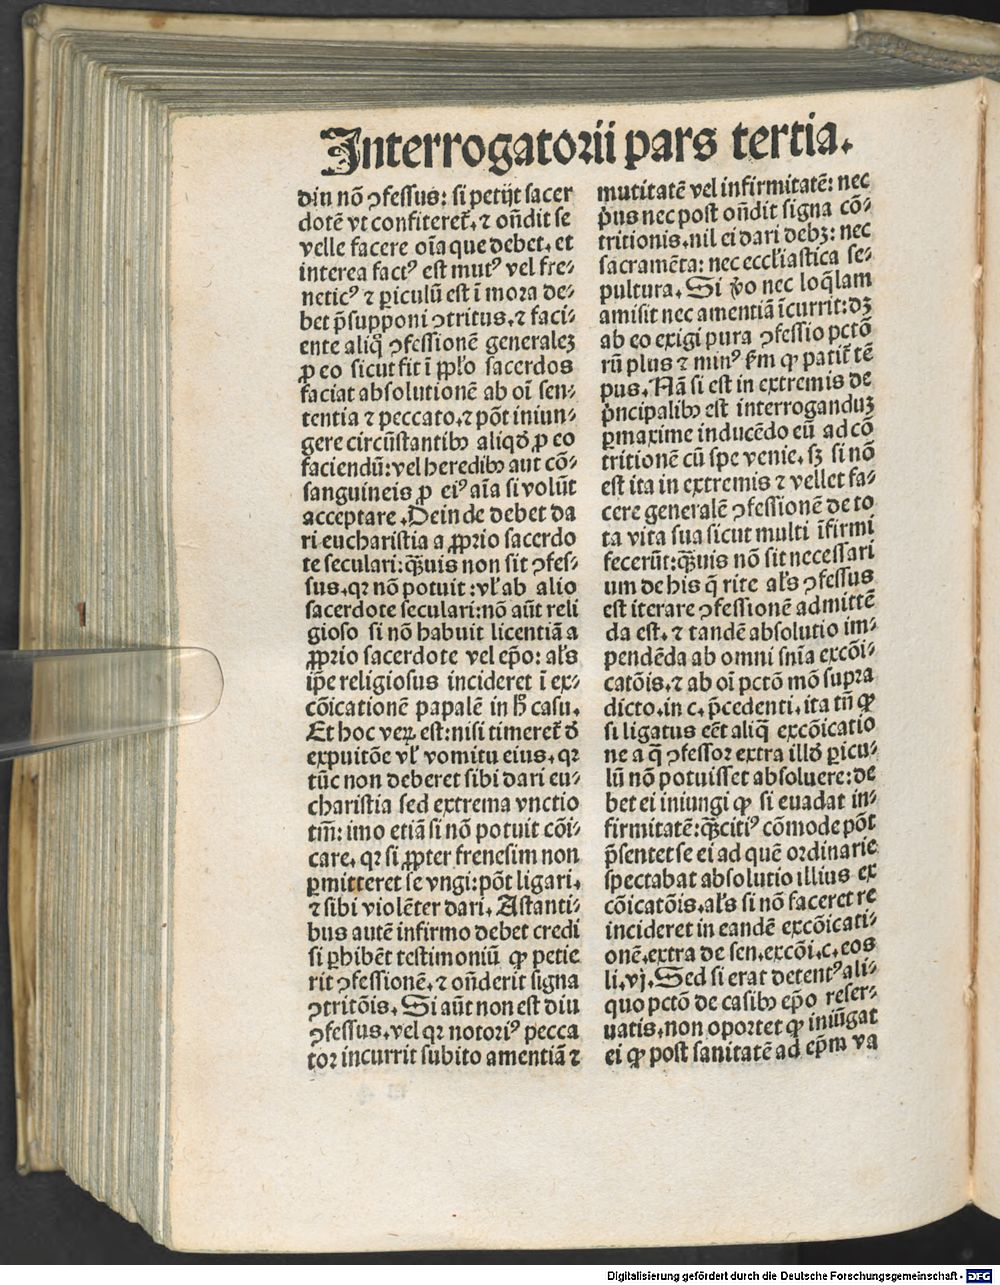 Interrogatorii pars tertia.
diu nō ꝯfessus: si petijt sacer
dotē vt confiteret᷑. ⁊ oñdit se
velle facere oīa que debet. et
interea factꝰ est mutꝰ vel fre⸗
neticꝰ ⁊ ꝑiculū est ī mora de⸗
bet p̄supponi ꝯtritus. ⁊ faci⸗
ente aliq̄ ꝯfessionē generaleꝫ
ꝓ eo sicut fit ī ꝓpl'o sacerdos
faciat absolutionē ab oī sen⸗
tentia ⁊ peccato. ⁊ pōt iniun⸗
gere circūstantibꝰ aliqđ ꝓ eo
faciendū: vel heredibꝰ aut cō⸗
sanguineis ꝓ eiꝰ aīa si volūt
acceptare. Deinde debet da
ri eucharistia a ꝓprio sacerdo
te seculari: qꝫuis non sit ꝯfes⸗
sus. qꝛ nō potuit: vl' ab alio
sacerdote seculari: nō aūt reli
gioso si nō habuit licentiā a
ꝓprio sacerdote vel ep̄o: al's
ip̄e religiosus incideret ī ex⸗
cōicationē papalē in h̄ casu.
Et hoc veꝝ est: nisi timeret᷑ đ
expuitōe vl' vomitu eius. qꝛ
tūc non deberet sibi dari eu⸗
charistia sed extrema vnctio
tm̄: imo etiā si nō potuit cōi⸗
care. qꝛ si ꝓpter frenesim non
ꝑmitteret se vngi: pōt ligari.
⁊ sibi violēter dari. Astanti⸗
bus autē infirmo debet credi
si ꝑhibēt testimoniū ꝙ petie
rit ꝯfessionē. ⁊ oñderit signa
ꝯtritōis. Si aūt non est diu
ꝯfessus. vel qꝛ notoriꝰ pecca
tor incurrit subito amentiā ⁊
mutitatē vel infirmitatē: nec
p̄us nec post oñdit signa cō⸗
tritionis. nil ei dari debꝫ: nec
sacramēta: nec eccl'iastica se⸗
pultura. Si v̄o nec loq̄lam
amisit nec amentiā īcurrit: dꝫ
ab eo exigi pura ꝯfessio pctō
rū plus ⁊ minꝰ s̄m ꝙ patit᷑ tē
pus. Nā si est in extremis de
p̄ncipalibꝰ est interroganduꝫ
ꝑmaxime inducēdo eū ad cō
tritionē cū spe venie. sꝫ si nō
est ita in extremis ⁊ vellet fa⸗
cere generalē ꝯfessionē de to
ta vita sua sicut multi īfirmi
fecerūt: qꝫuis nō sit necessari
um de his q̄ rite al's ꝯfessus
est iterare ꝯfessionē admittē
da est. ⁊ tandē absolutio im⸗
pendēda ab omni sn̄ia excōi⸗
catōis. ⁊ ab oī pctō mō supra
dicto. in c. p̄cedenti. ita tn̄ ꝙ
si ligatus eēt aliq̄ excōicatio
ne a q̄ ꝯfessor extra illđ ꝑicu⸗
lū nō potuisset absoluere: de
bet ei iniungi ꝙ si euadat in⸗
firmitatē: qꝫcitiꝰ cōmode pōt
p̄sentet se ei ad quē ordinarie
spectabat absolutio illius ex
cōicatōis. al's si nō faceret re
incideret in eandē excōicati⸗
onē. extra de sen. excōi. c. eos
li. vj. Sed si erat detentꝰ ali⸗
quo pctō de casibꝰ ep̄o reser⸗
uatis. non oportet ꝙ iniūgat
ei ꝙ post sanitatē ad ep̄m va
Digitalisierung gefördert durch die Deutsche Forschungsgemeinschaft - DFG